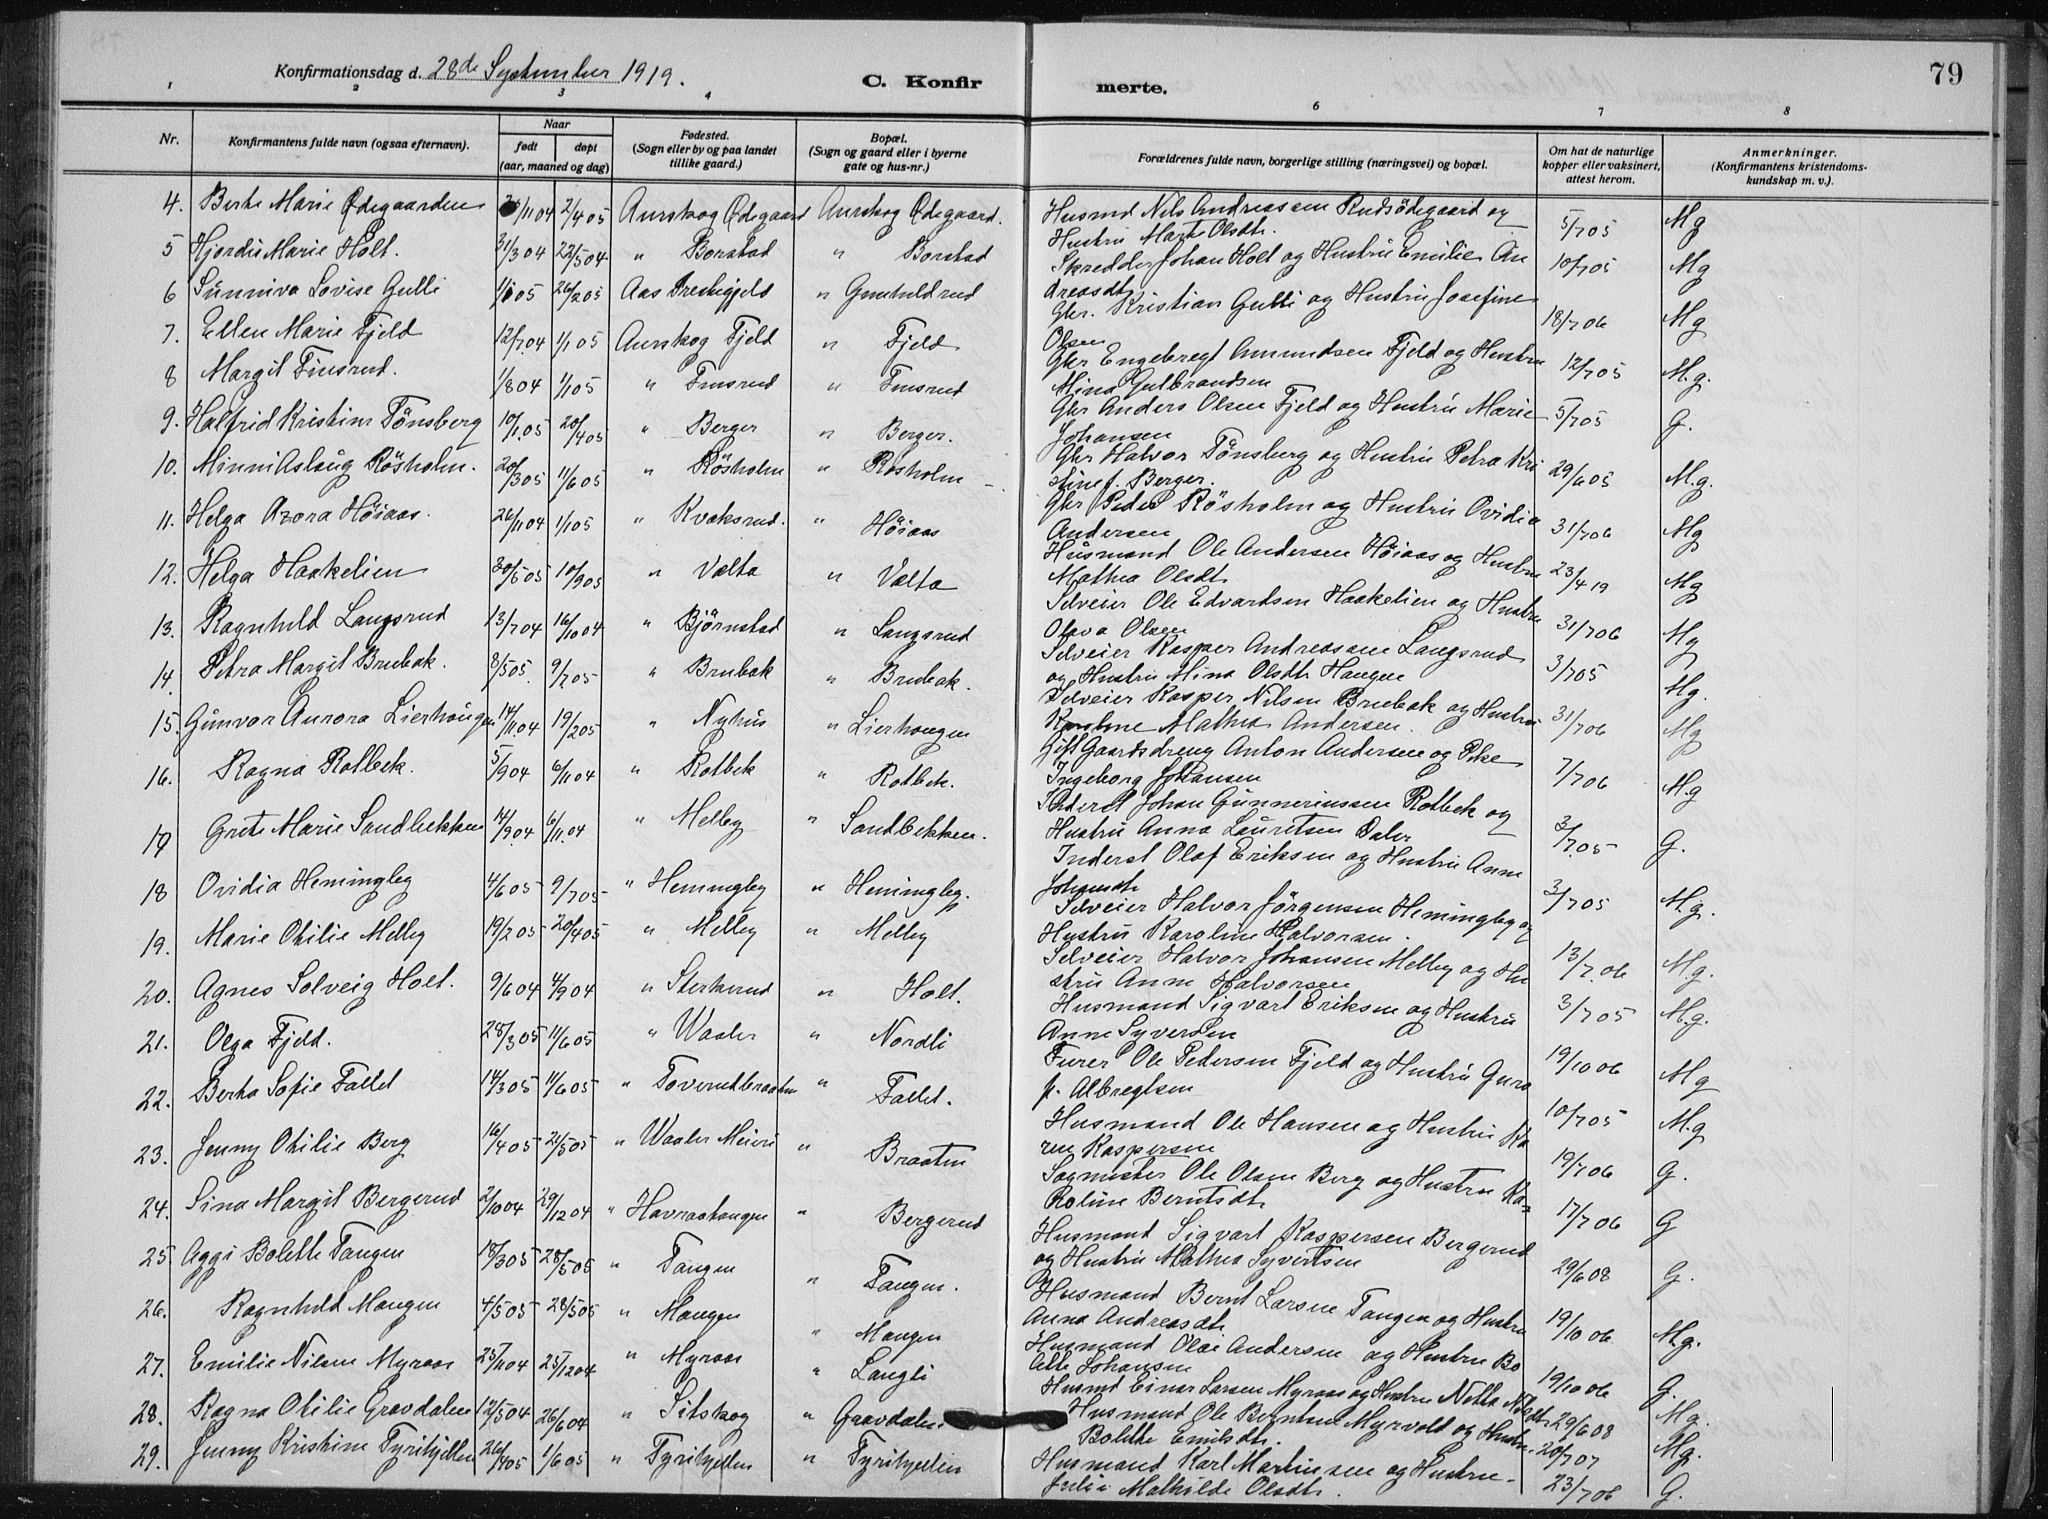 79
Konfirmationsdag d. 28de September 1919.
C. Konfirmerte.
1 2 3 4 6 7 8
Nr. Konfirmantens fulde navn (ogsaa efternavn). Naar født døpt (aar, maaned og dag) Fødested. (Sogn eller by og paa landet tillike gaard.) Bopæl. (Sogn og gaard eller i byerne gate og hus-nr.) Forældrenes fulde navn, borgerlige stilling (næringsvei) og bopæl. Om hat de naturlige kopper eller vaksinert, attest herom. Anmerkninger. (Konfirmantens kristendomskundskap m. v.).
4. Berte Marie Ødegaarden /11 04 2/4 05 Aurskog Ødegaard Aurskog Ødegaard. Husmd Nils Andreassen Rudsödegaard og 5/7 05 Mg
Hustru Marte Olsdt.
5 Hjordis Marie Holt. 31/3 04 22/5 04 " Borstad " Borstad Skredder Johan Holt og Hustru Emilie An 10/7 05 Mg
dreasdt
6 Sunniva Lovise Gulli 1/1 05 26/2 05 Aas Prestegjeld " Gunhildrud Gbr. Kristian Gulli og Hustru Josefine 18/7 06 Mg
Olsen
7. Ellen Marie Fjeld 12/7 04 1/1 05 Aurskog Fjeld " Fjeld Gbr Engebregt Amundsen Fjeld og Hustru 12/7 05 M.g.
Mina Gulbrandsen
8 Margit Finsrud. 1/8 04 1/1 05 " Finsrud " Finsrud Gbr Anders Olsen Fjeld og Hustru Marie 5/7 05 G.
Johansen
9. Halfrid Kristine Tönsberg 10/1 05 20/4 05 " Berger " Berger. Gbr Halvor Tönsberg og Hustru Petra Kri 29/6 05 M.g.
stine f. Berger.
10. Minni Aslaug Rösholm. 20/3 05 11/6 05 " Rösholm " Rosholm Gbr Peder Rösholm og Hustru Ovidia 31/7 06 Mg
Andersen
11. Helga Azora Höiaas. 26/11 04 1/1 05 " Kvaksrud. " Höiaas Husmand Ole Andersen Höiaas og Hustru 23/4 19 Mg
Mathea Olsdt.
12. Helga Haakelien 30/5 05 10/9 05 " Valta " Valta Selveier Ole Edvardsen Haakelien og Hustru 31/7 06 Mg
Olava Olsen
13. Ragnhild Langsrud 13/7 04 16/10 04 " Björnstad " Langsrud Selveier Kasper Andreassen Langsrud 3/7 05 Mg.
og Hustru Mina Olsdt Haugen
14. Petra Margit Brubak. 8/5 05. 9/7 05 " Brubak " Brubak. Selveier Kasper Nilsen Brubak og Hustru 31/7 06 Mg
Karoline Mathea Andersen.
15. Gunvor Aurora Lierhaugen 14/11 04 19/2 05 " Nyhus " Lierhaugen Gift Gaardsdreng Anton Andersen og Pike 7/7 06 M.g
Ingeborg Johansen
16. Ragna Rotbek. 5/9 04 6/11 04 " Rotbek " Rotbek. Inderst Johan Gunneriussen Rotbek og 3/7 05 G.
Hustru Anna Lauretsen Daler
17 Grete Marie Sandbekken 14/9 04 6/11 04 " Melby " Sandbekken. Inderst Olaf Eriksen og Hustru Anne 3/7 05 M.g.
Johansdt
18 Ovidia Hemingby 4/6 05 9/7 05 " Hemingby " Hemingby. Selveier Halvor Jörgensen Hemingby og 13/7 06 M.g.
Hustru Karoline Halvorsen.
19. Marie Otilie Melby 19/2 05 20/4 05 " Melby " Melby Selveier Halvor Johansen Melby og Hu 3/7 05 M.g.
stru Anne Halvorsen
20. Agnes Solveig Holt. 9/6 04 4/9 04 " Sterkerud " Holt. Husmand Sigvart Eriksen og Hustru 19/10 06 Mg
Anne Syversen
21. Olga Fjeld. 28/3 05 11/6 05 " Waaler " Nordli Furer Ole Pedersen Fjeld og Hustru Guro 10/7 05 M.g
f. Albregtsen
22. Berta Sofie Fallet 14/3 05 11/6 05 " Toverudbraaten " Fallet. Husmand Ole Hansen og Hustru Ka 19/7 06 G.
ren Kaspersen
23. Jenny Otilie Berg 16/4 05 21/5 05 " Waaler Meieri " Braaten Sagmester Ole Olsen Berg og Hustru Ka 17/7 06 G
roline Berntsdt.
24. Sina Margit Bergerud 2/10 04 29/12 04 " Havraahaugen " Bergerud Husmand Sigvart Kaspersen Bergerud 29/6 08 G.
og Hustru Mathea Syvertsen
25. Aggi Bolette Tangen 18/3 05 28/5 05 " Tangen " Tangen. Husmand Bernt Larsen Tangen og Hustru 19/10 06 M.g.
Anna Andreasdt.
26. Ragnhild Mangen 4/5 05 28/5 05 " Mangen " Mangen Husmand Olai Andersen og Hustru Bo 19/10 06 G.
lette Johansen
27. Emilie Nilsen Myraas 25/11 04 25/12 04 " Myraas " Langli Husmd Einar Larsen Myraas og Hustru Netta Nilsdt. 29/6 08 M.g.
28. Ragna Otilie Gravdalen 12/5 04 26/6 04 " Setskog " Gravdalen Husmand Ole Berntsen Myrvold og Hustru 20/7 07 M.g.
Bolette Emilsdt.
29. Jenny Kristine Tyrihjellen 26/4 05 1/6 05 " Tyrihjellen " Tyrihjellen Husmand Karl Martinsen og Hustru 23/7 06 G.
Julie Mathilde Olsdt.